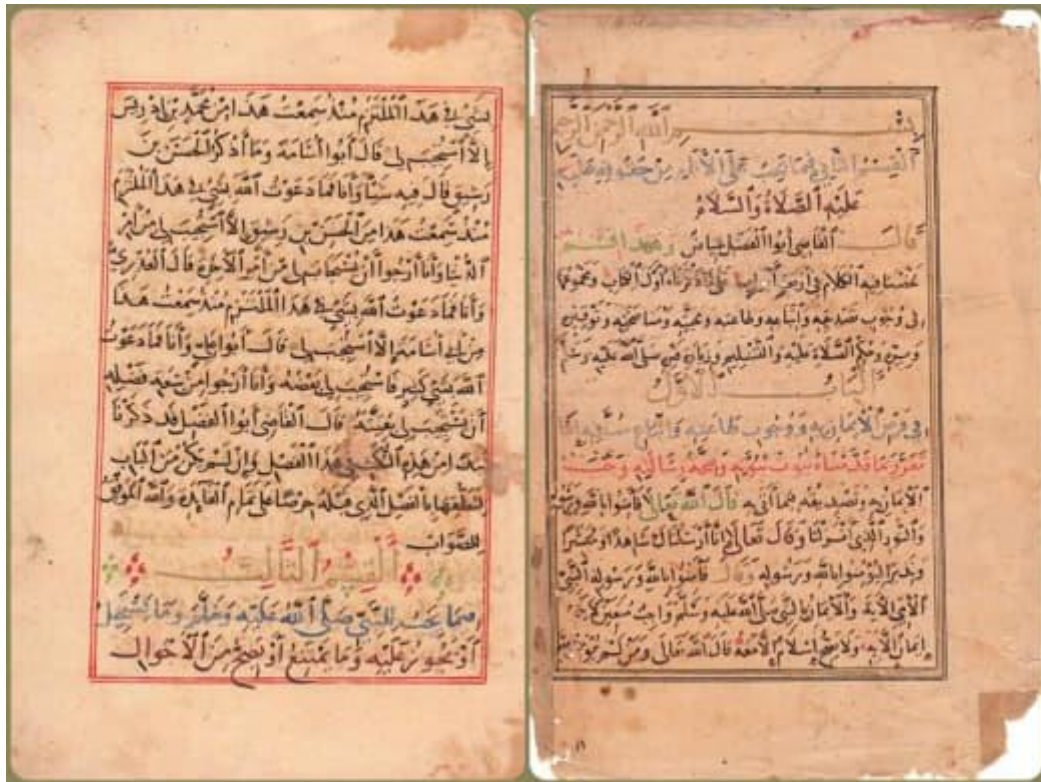 بســـــــم الله الرحمن الرحيم
القسم الثاني فيما يجب على الأنام من حقوقه عليه
عليه الصلاة والسلام
قال القاضي أبوا الفضل عياض وهذا قسم
لخصنا فيه الكلام في أربعة أبواب على ما ذكرناه أول الكتاب ومجموعها
في وجوب تصديقه واتباعه وطاعته ومحبته ومناصحته وتوقيره
وبره وحكم الصلاة عليه والتسليم وزيارة قبره صلى الله عليه وسلم
الباب الأول
في فرض الإيمان به ووجوب طاعته واتباع سنته إذا
تقرر بما قدمناه ثبوت نبوته وصحة رسالته وجب
الإيمان به وتصديقه فيما أتى به قال الله تعالى فآمنوا بالله ورسوله
والنور الذي أنزلنا وقال تعالى إنا أرسلناك شاهدا ومبشرا
ونذيرا لتؤمنوا بالله ورسوله وقال فآمنوا بالله ورسوله النبي
الأمي الآية والإيمان بالنبي صلى الله عليه وسلم واجب متعين لا يتم
إيمان إلا به ولا يصح إسلام إلا معه قال الله تعالى ومن لم يؤمن
بشيء في هذا الملتزم منذ سمعت هذا من محمد بن إدريس
إلا أستجيب لي قال أبوا أسامة وما أذكر الحسن بن
رشيق قال فيه شيأ وأنا فما دعوت الله بشيء في هذا الملتزم
منذ سمعت هذا من الحسن بن رشيق إلا أستجيب لي من أمر
الدنيا وأنا أرجوا أن يستجاب لي من أمر الآخرة قال العذري
وأنا فما دعوت الله بشيء في هذا الملتزم منذ سمعت هذا
من أبي أسامة إلا أستجيب لي قال أبوا علي وأنا فما دعوت
الله بشيء كثير فاستجيب لي بعضه وأنا أرجوا من سعة فضله
أن يستجيب لي بقيته قال القاضي أبوا الفضل قد ذكرنا
نبذا من هذه النكت في هذا الفصل وإن لم تكن من الباب
لتعلقها بالفصل الذي قبله حرصا على تمام الفايدة والله الموفق
للصواب
القسم الثالث
فيما يجب للنبي صلى الله عليه وسلم وما يستحيل
أو يجوز عليه وما يمتنع أو يصح من الأحوال